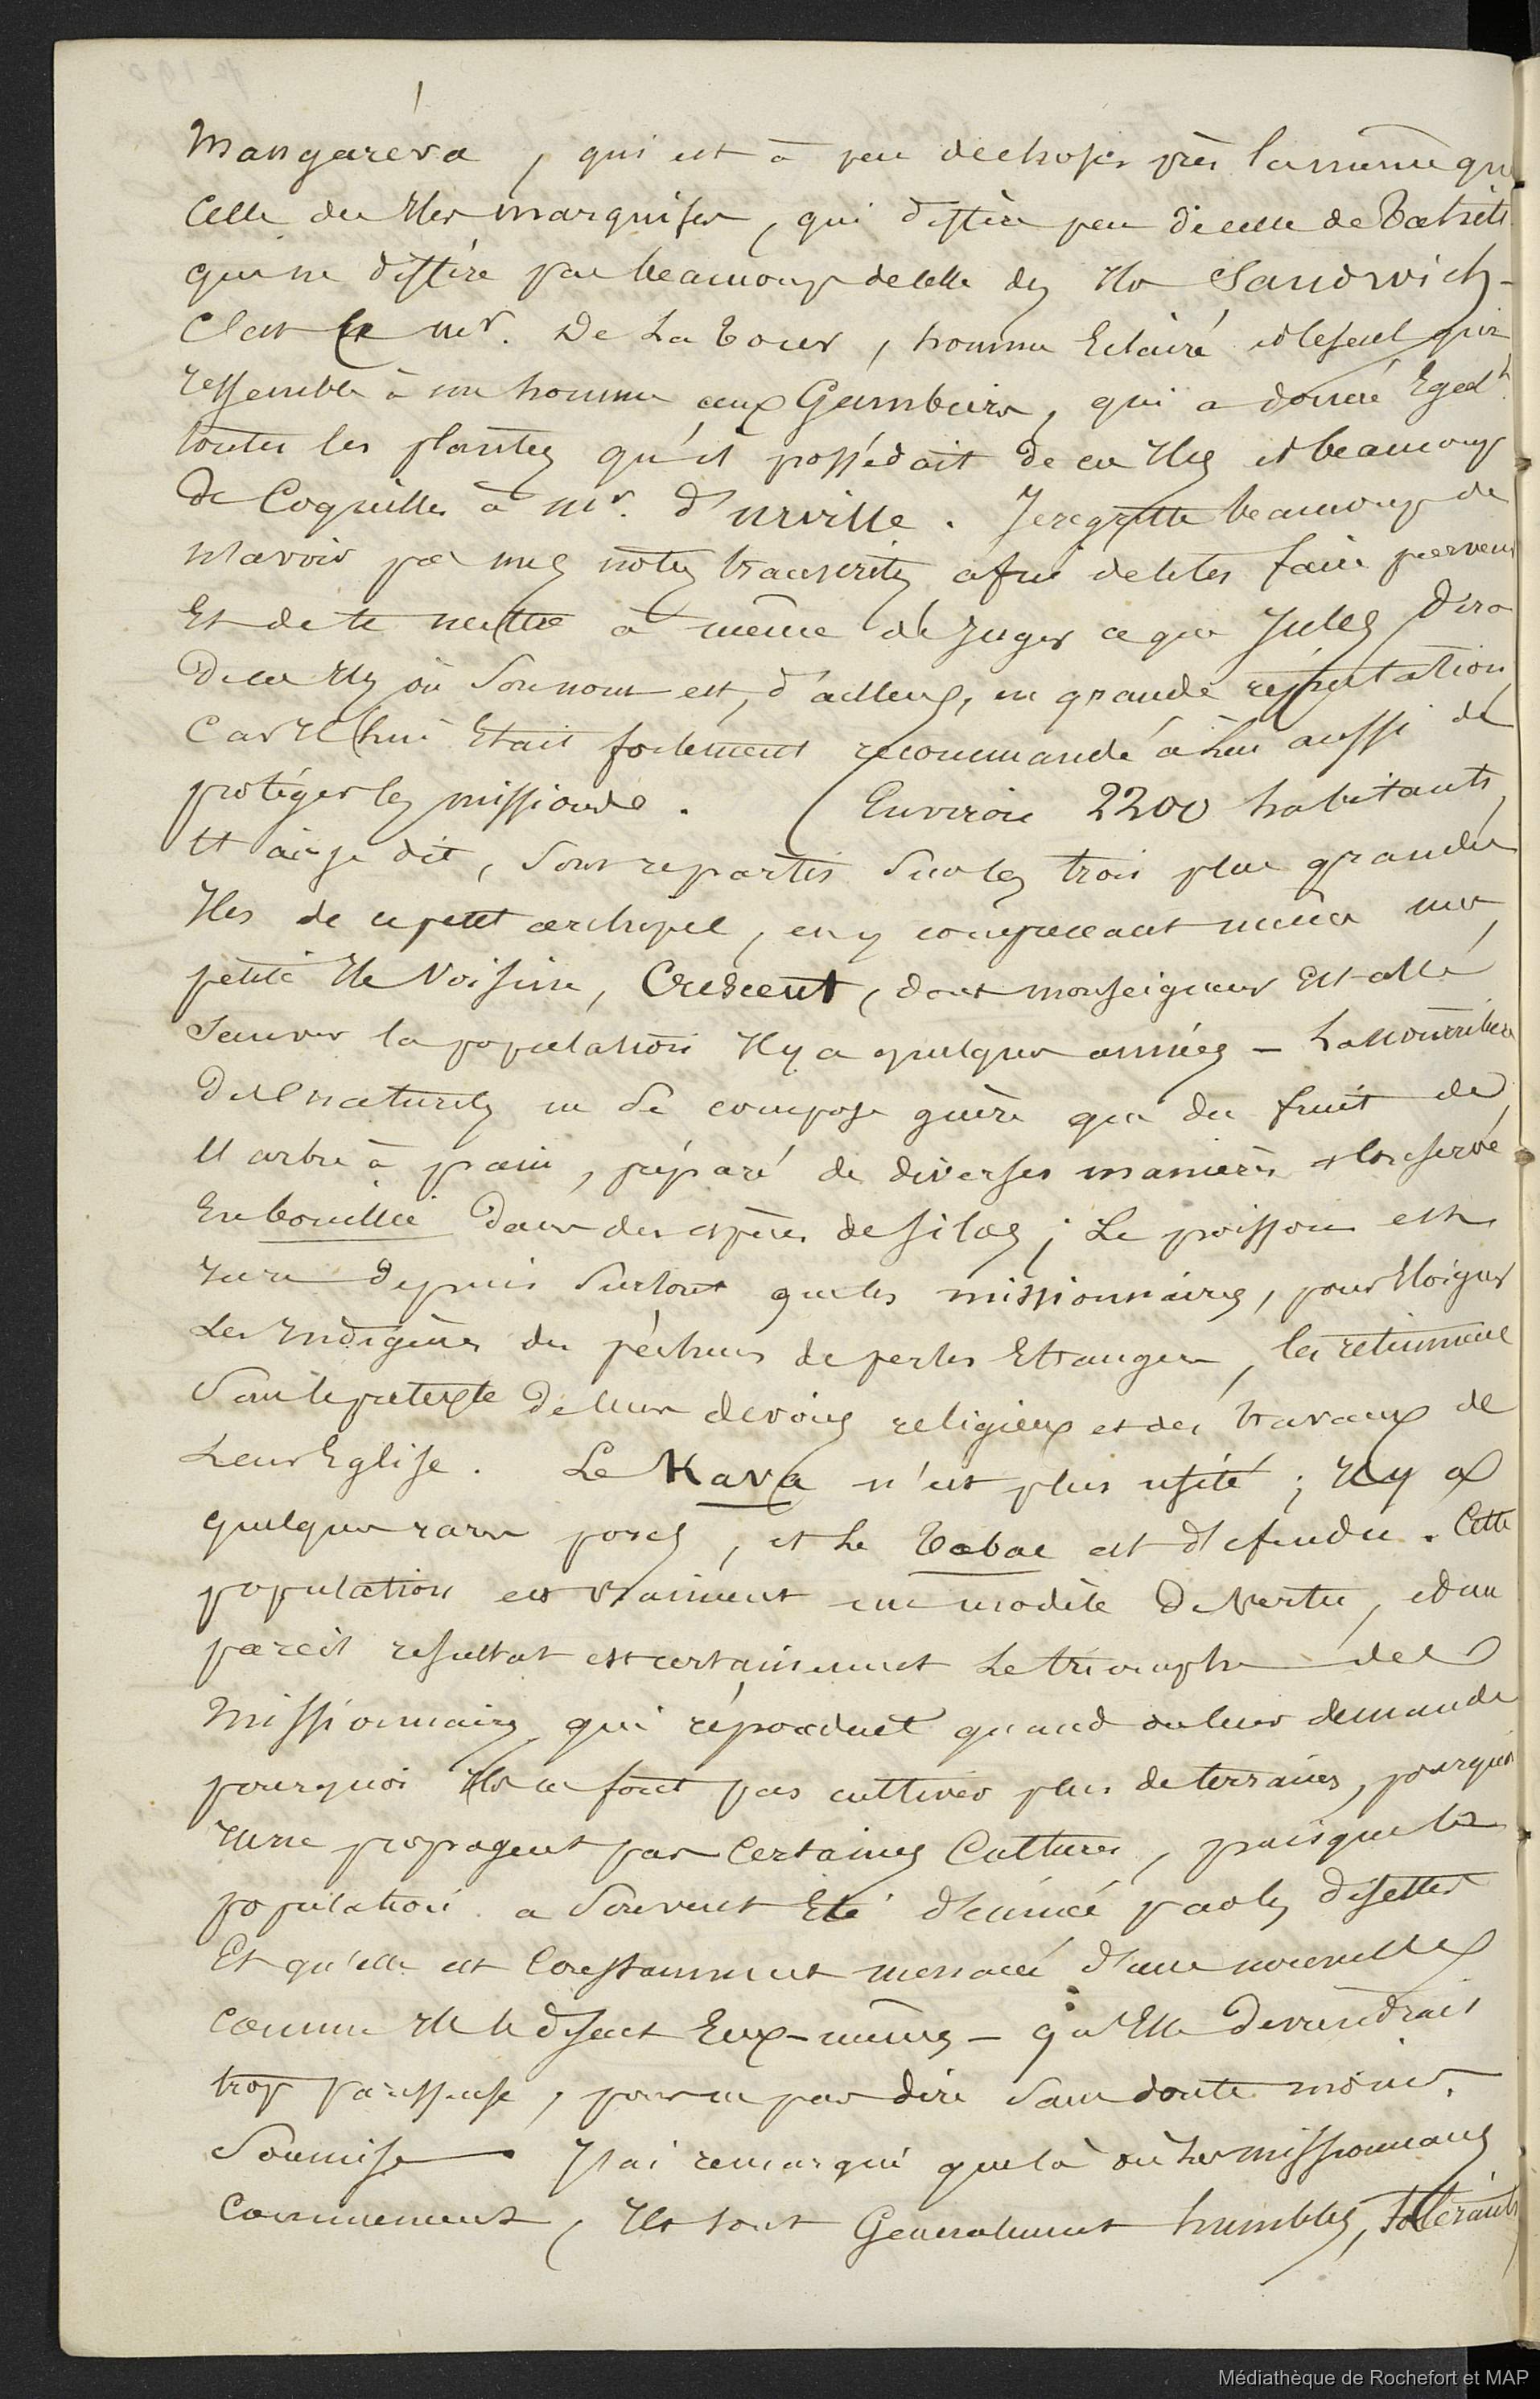 Mangaréva, qui est à peu de choses près la même que
celle des Iles marquises, qui diffère peu de celle de Tahiti
qui ne diffère pas beaucoup de celle des Iles Sandwich –
C'est ce mr. De La Tour, homme Eclairé et le seul qui
ressemble à un homme aux Gambiers, qui a donné Egalt.
toutes les plantes qu'il possédait de ces Iles et beaucoup
de Coquilles à Mr. d'Urville. Je regrette beaucoup de
n'avoir pas mes notes transcrites afin de te les faire parvenir
Et de te mettre à même de juger ce que Jules dira
de ces Iles où son nom est, d'ailleurs, en grande réputation,
Car Il lui était fortement recommandé à lui aussi de
protéger les missions. Environ 2200 habitants,
t'ai-je dit, sont repartis sur les trois plus grandes
Iles de ce petit archipel, en y comprenant même une
petite Ile Voisine, Crescent, dont monseigneur est allé
sauver la population Il y a quelques années – La nourriture
des naturels ne se compose guère que du fruit de
l'arbre à pain, préparé de diverses manières et conservé
En bouillie dans des espèces de silos; Le poisson est
rare depuis surtout que les missionnaires, pour Eloigner
Les Indigènes des pêcheurs de perles Etrangers, les retiennent
sous le prétexte de leurs devoirs religieux et des travaux de
Leur Eglise. Le Kava n'est plus usité; Il y a
quelques rares porcs, et le Tabac est défendu. Cette
population est vraiment un modèle de Vertu, et un
pareil resultat est certainement Le triomphe des
Missionnaires qui répondent quand on leur demande
pourquoi Ils ne font pas cultiver plus de terrains, pourquoi
Ils ne propagent pas certaines Cultures, puisque la
population a souvent Eté décimée par les disettes
Et qu'elle est Constamment menacée d'une nouvelle
comme Ils le disent Eux-mêmes – qu'Elle deviendrait
trop paresseuse, pour ne pas dire sans doute moins
soumise – J'ai remarqué que là où Les missionnaires
Commencent, Ils sont Généralement humbles, tolérants